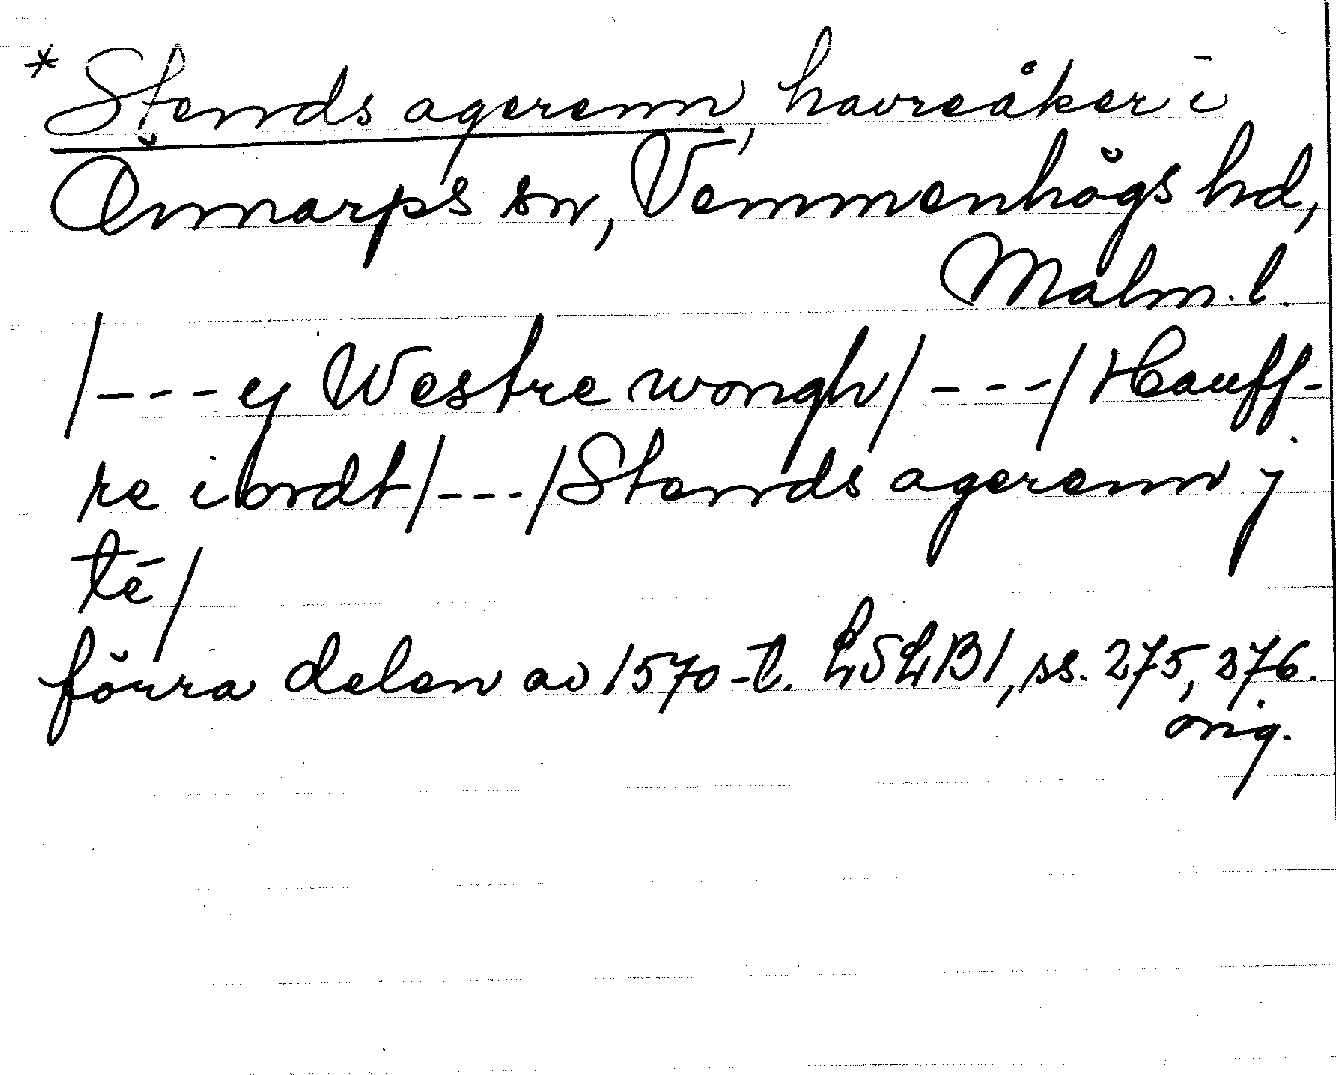 * Stends agerenn, havreåker i
Önnarps sn, Vemmenhögs hd,
Malm. l.
/---ey Westre wongh/---/Hauff-
re iordt/---/Stends agerenn j
tē/
förra delen av 1570-t. LSLB1, ss. 275, 276.
orig.